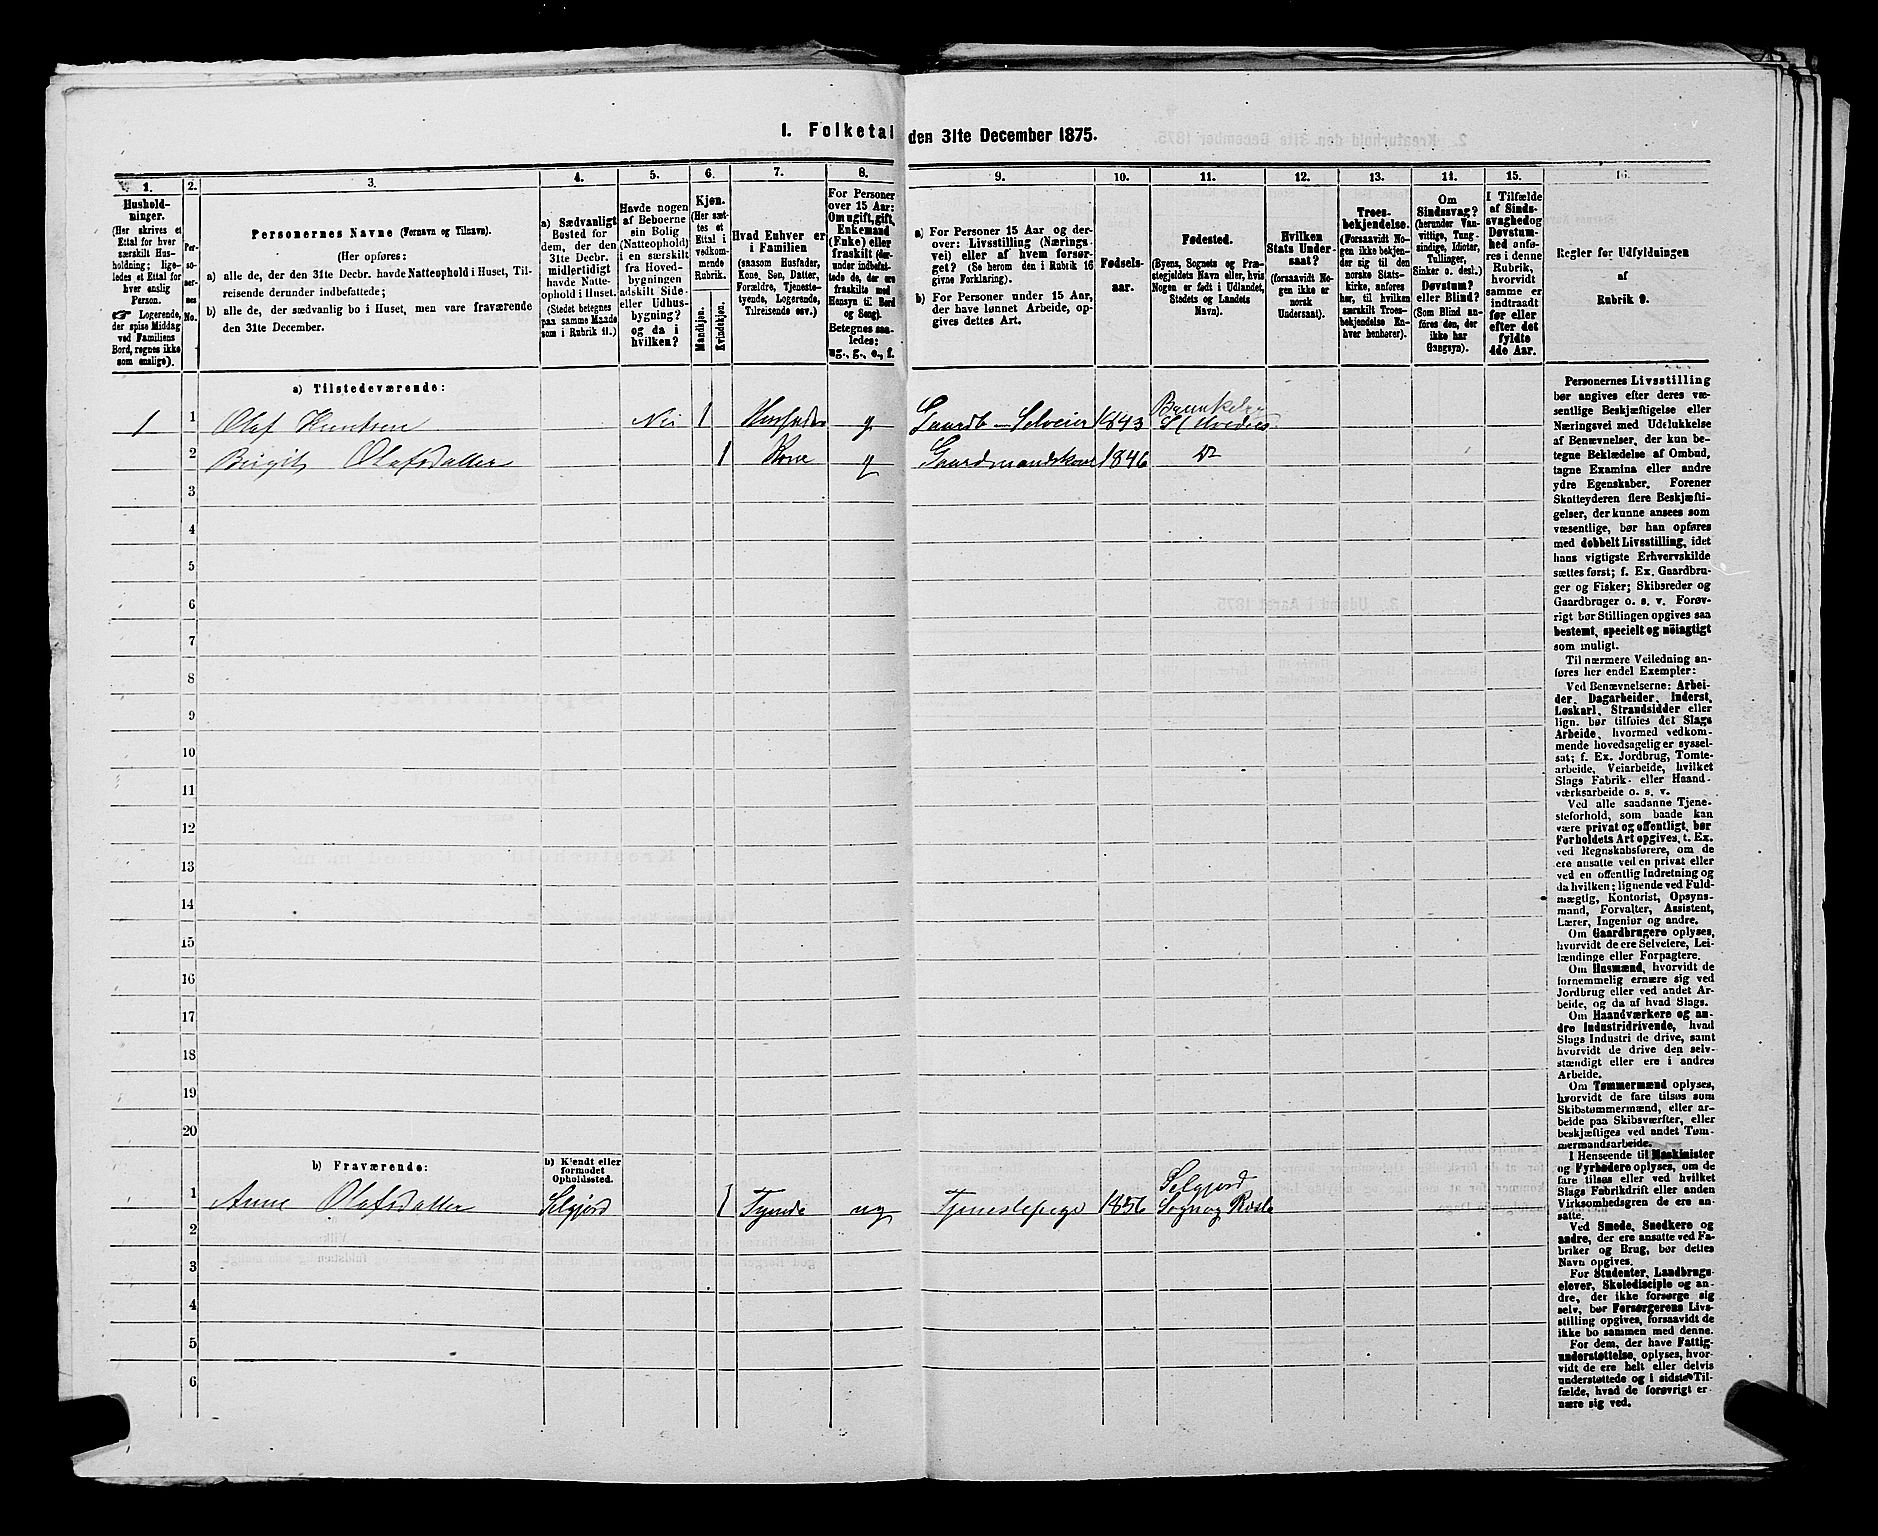 1. Folketal den 31te December 1875.
1.
Hushold-
ninger.
(Her skrives et
Ettal for hver
særskilt Hus-
holdning; lige-
ledes et Ettal for
hver enslig
Person.
☞ Logerende,
der spise Middag
ved Familiens
Bord, regnes ikke
som enslige).
2.
Per-
so-
ner-
nes
No.
3.
Personernes Navne (Fornavn og Tilnavn).
(Her opføres:
a) alle de, der den 31te Decbr. havde Natteophold i Huset, Til-
reisende derunder indbefattede;
b) alle de, der sædvanlig bo i Huset, men vare fraværende
den 31te December.
4.
a) Sædvanligt
Bosted for
dem, der den
31te Decbr.
midlertidigt
havde Natte-
ophold i Huset.
(Stedet betegnes
paa samme Maade
som i Rubrik 11.)
5.
Havde nogen
af Beboerne
sin Bolig
(Natteophold)
i en særskilt
fra Hoved-
bygningen
adskilt Side-
eller Udhus-
bygning?
og da i
hvilken?
6.
Kjøn.
(Her sæt-
tes et
Ettal i
vedkom-
mende
Rubrik.
Mandkjøn.
Kvindekjøn.
7.
Hvad Enhver er
i Familien
(saasom Husfader,
Kone, Søn, Datter,
Forældre, Tjeneste-
tyende, Logerende,
Tilreisende osv.)
8.
For Personer
over 15 Aar:
Om ugift, gift,
Enkemand
(Enke) eller
fraskilt (der-
under indbefat-
tede de, der ere
fraskilte med
Hensyn til Bord
og Seng).
Betegnes saa-
ledes:
ug., g., e., f.
9.
a) For Personer 15 Aar og der-
over: Livsstilling (Nærings-
vei) eller af hvem forsør-
get? (Se herom den i Rubrik 16
givne Forklaring).
b) For Personer under 15 Aar,
der have lønnet Arbeide, op-
gives dettes Art.
10.
Fødsels-
aar.
11.
Fødested.
(Byens, Sognets og Præ-
stegjeldets Navn eller, hvis
Nogen er født i Udlandet,
Stedets og Landets
Navn).
12.
Hvilken
Stats Under-
saat?
(forsaavidt No-
gen ikke er
norsk
Undersaat).
13.
Troes-
bekjendelse.
(Forsaavidt No-
gen ikke bekjen-
der sig til den
norske Stats-
kirke, anføres
her, til hvilken
særskilt Troes-
bekjendelse En-
hver henhører).
14.
Om
Sindssvag?
(herunder Van-
vittige, Tung-
sindige, Idioter,
Tullinger,
Sinker o. desl.)
Døvstum?
eller Blind?
(Som Blind an-
føres den, der
ikke har
Gangsyn).
15.
I Tilfælde
af Sinds-
svaghed og
Døvstum-
hed anfø-
res i denne
Rubrik,
hvorvidt
samme er
indtraadt
før eller
efter det
fyldte
4de Aar.
16.
Regler for Udfyldningen
af
Rubrik 9.
a) Tilstedeværende:
1 1 Olaf Knutsen Nei 1 Husfader g Gaardb Selveier 1843
2 Birgit Olafsdatter 1 Kone g Gaardmandskone 1846 Do
3
4
5
6
7
8
9
10
11
12
13
14
15
16
17
18
19
20
b) Fraværende:
b) Kjendt eller
formodet
Opholdssted.
1 Anne Olafsdatter Selgjord 1 Tjende ug Tjenestepige 1856 Selgjord
Sogn og
2
3
4
5
6
Personernes Livsstilling
bør angives efter deres væ-
sentlige Beskjæftigelse eller
Næringsvei med Udelukkelse
af Benævnelser, der kun be-
tegne Beklædelse af Ombud,
tagne Examina eller andre
ydre Egenskaber. Forener
Skatteyderen flere Beskjæfti-
gelser, der kunne ansees som
væsentlige, bør han opføres
med dobbelt Livsstilling, idet
hans vigtigste Erhvervskilde
sættes først; f. Ex. Gaardbru-
ger og Fisker; Skibsreder og
Gaardbruger o. s. v. Forøv-
rigt bør Stillingen opgives saa
bestemt, specielt og nöiagtigt
som muligt.
Til nærmere Veiledning an-
føres her endel Exempler:
Ved Benævnelserne: Arbei-
der, Dagarbeider, Inderst,
Løskarl, Strandsidder eller
lign. bør tilføies det Slags
Arbeide, hvormed vedkom-
mende hovedsagelig er syssel-
sat; f. Ex. Jordbrug, Tomte-
arbeide, Veiarbeide, hvilket
Slags Fabrik- eller Haand-
værksarbeide o. s. v.
Ved alle saadanne Tjene-
steforhold, som baade kan
være privat og offentligt, bør
Forholdets Art opgives, t. Ex.
ved Regnskabsførere, om de
ere ansatte ved en privat eller
ved en offentlig Indretning og
da hvilken; lignende ved Fuld-
mægtig, Kontorist, Opsyns-
mand, Forvalter, Assistent,
Lærer, Ingeniør og andre.
Om Gaardbrugere oplyses,
hvorvidt de ere Selveiere, Lei-
lændinge eller Forpagtere.
Om Husmænd, hvorvidt de
fornemmelig ernære sig ved
Jordbrug eller ved andet Ar-
beide, og da af hvad Slags.
Om Haandværkere og an-
dre Industridrivende, hvad
Slags Industri de drive, samt
hvorvidt de drive den selv-
stændigt eller ere i andres
Arbeide.
Om Tømmermænd oplyses,
hvorvidt de fare tilsøs som
Skibstømmermænd, eller ar-
beide paa Skibsværfter, eller
beskjæftiges ved andet Tøm-
mermandsarbeide.
I Henseende til Maskinister
og Fyrbødere oplyses, om de
fare tilsøs eller ved hvilket
Slags Fabrikdrift eller anden
Virksomhedsgren de ere an-
satte.
Ved Smede, Snedkere og
andre, der ere ansatte ved Fa-
briker og Brug, bør dettes
Navn opgives.
For Studenter, Landbrugs-
elever, Skoledisciple og an-
dre, der ikke forsørge sig
selv, bør Forsørgerens Livs-
stilling opgives, forsaavidt de
ikke bo sammen med denne.
For dem, der have Fattig-
understøttelse, oplyses, hvor-
vidt de ere helt eller delvis
understøttede og i sidste Til-
fælde, hvad de forøvrigt er-
nære sig ved.